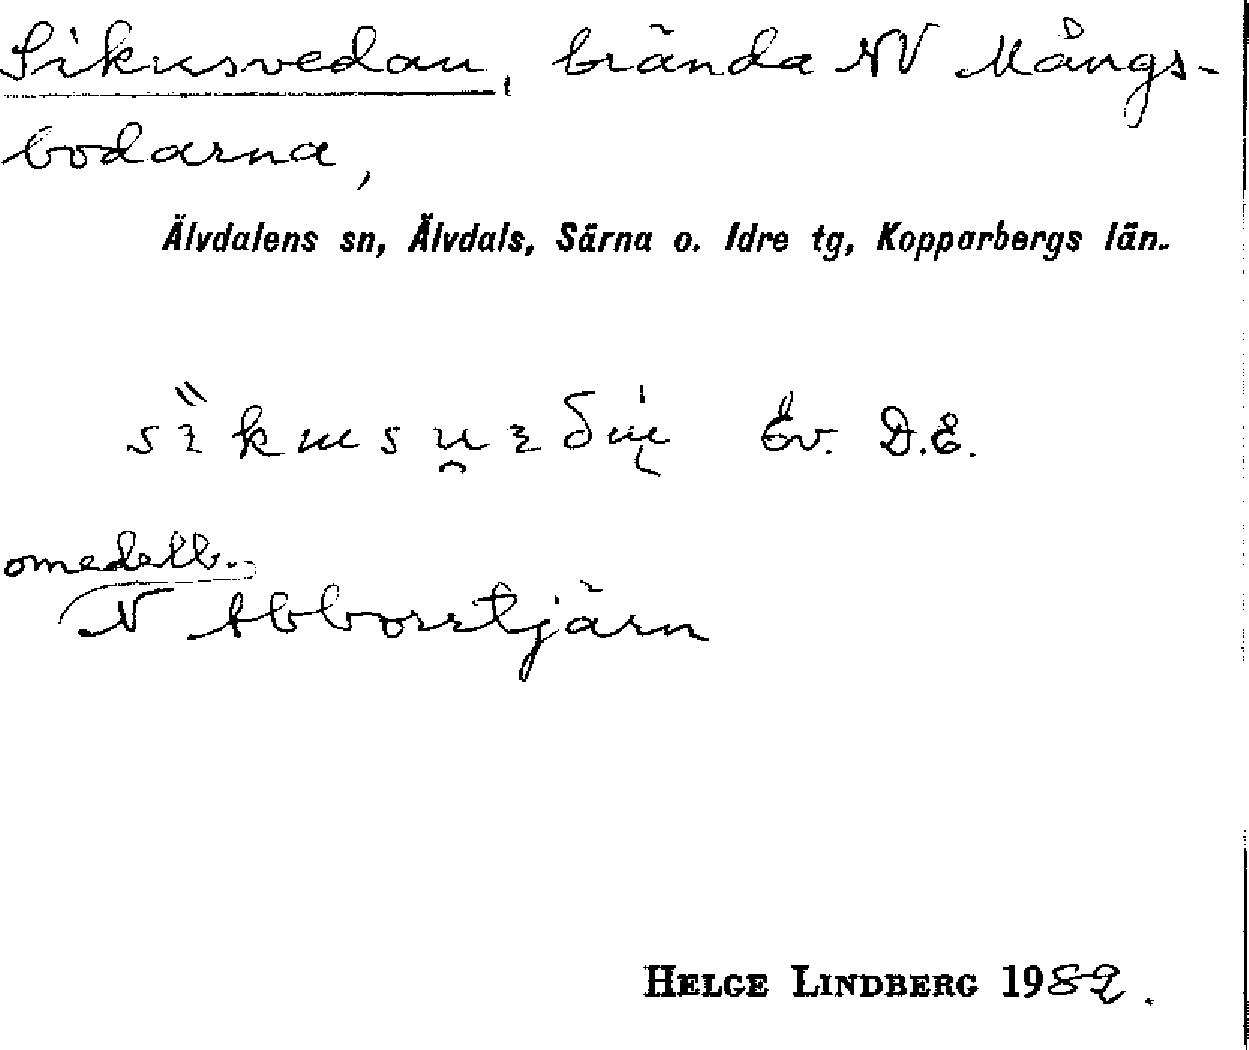 Sikusvedan, brända NV Mångs-
bodarna,
Älvdalens sn, Älvdals, Särna o. Idre tg, Kopparbergs län.
Ev. D.E.
omedelb.
N Abborrtjärn
HELGE LINDBERG 1982.